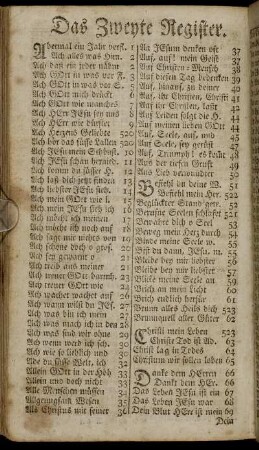 Das Zweyte Register.
Abermal ein Jahr verfl. 1
Ach alles was Him. 2
Ach daß ein jeder nähm 2
Ach GOtt in was vor F. 3
Ach GOtt in was vor S. 5
Ach GOtt mich drückt 6
Ach GOtt wie manches 7
Ach HErr JEsu sey uns 8
Ach HErr wie dürstet 8
Ach Hertzens Geliebte 520
Ach hör das süsse Lallen 520
Ach JEsu mein Schönst. 10
Ach JEsu schau hernied. 11
Ach komm du süsser H. 12
Ach laß dich jetzt finden 13
Ach liebster JEsu sieh. 13
Ach mein GOtt wie l. 15
Ach mein JEsu sieh ich 16
Ach möcht ich meinen 17
Ach möcht ich noch auf 18
Ach sage mir nichts von 19
Ach schone doch o gros. 20
Ach sey gewarnt o 21
Ach treib aus meiner 23
Ach treuer GOtt barmh. 23
Ach treuer GOtt wie 24
Ach wachet wachet auf 26
Ach wann willt du JES. 27
Ach was bin ich mein 27
Ach was mach ich in den 28
Ach was sind wir ohne 29
Ach wenn werd ich sch. 30
Ach wie so lieblich und 30
Ade du süsse Welt, ich 32
Allein GOtt in der Höh 33
Allein und doch nicht 33
Alle Menschen müssen 34
Allgenugsam Wesen 35
Als Christus mit seiner 36
Als JEsum denken oft 37
Auf, auf! mein Geist 37
Auf Christen-Mensch 38
Auf diesen Tag bedenken 39
Auf, hinauf, zu deiner 40
Auf, ihr Christen, Christi 41
Auf ihr Christen, laßt 42
Auf Leiden folgt die H. 43
Auf meinen lieben GOtt 44
Auf, Seele, auf, und 45
Auf Seele, sey gerüst 46
Auf, Triumph! es kömt 47
Aus der tiefen Gruft 49
Aus Lieb verwundter 50
Befiehl du deine W. 51
Befiehl mein Her. 522
Beglückter Stand get. 52
Berufne Seelen schlafet 521
Bewahre dich o Seel 53
Beweg mein Hertz durch 54
Binde meine Seele w. 55
Bist du dann, JEsu, m. 55
Bleibe bey mir liebster 56
Bleibe bey mir liebster 57
Blüte meine Seele an. 59
Brich an mein Licht 60
Brich endlich herfür 61
Brunn alles Heils dich 523
Brunnquell aller Güter 62
Christi mein Leben 523
Christe Tod ist Ad. 63
Christ lag in Todes 64
Christum wir sollen loben 65
Danke dem HErren 66
Dankt dem HErr. 66
Das Leben JEsu ist ein 67
Das Leben JEsu war 68
Dein Blut HErr ist mein 69
Dein